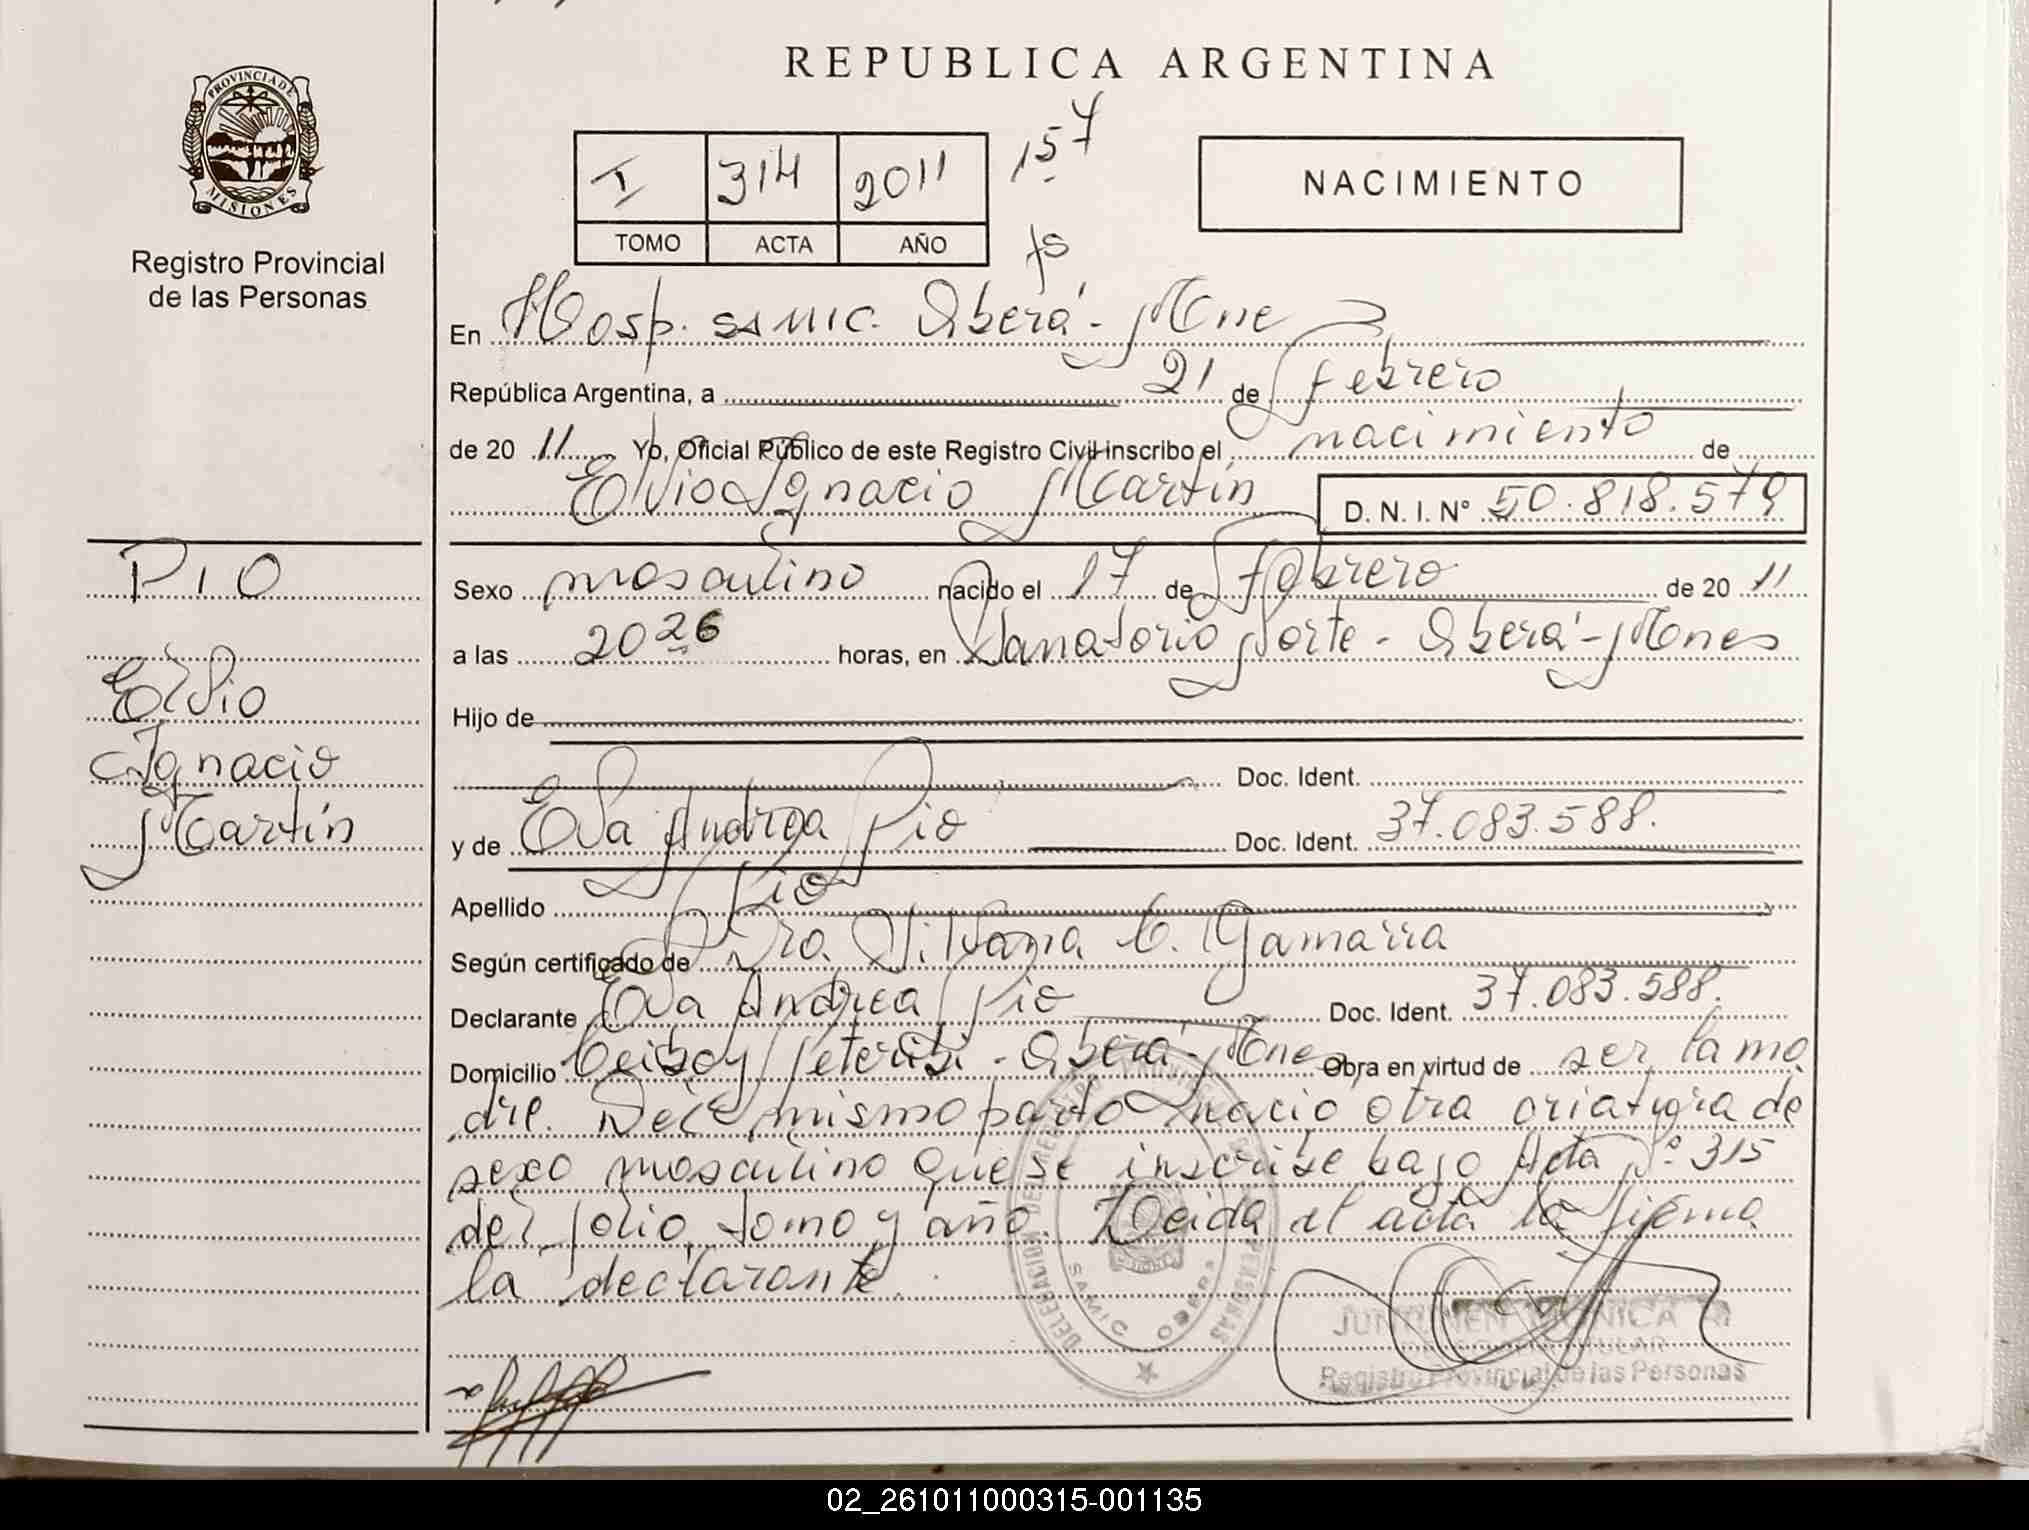 REPUBLICA ARGENTINA
PROVINCIA DE MISIONES
Registro Provincial
de las Personas
I 314 2011 157
TOMO ACTA AÑO fs
NACIMIENTO
En Hosp. SAMIC. Oberá - Mnes
República Argentina, a 21 de febrero
de 20 11 Yo, Oficial Público de este Registro Civil inscribo el nacimiento de
Elvio Ignacio Martín D. N. I. N° 50.818.579
PIO
Elvio
Ignacio
Martín
Sexo masculino nacido el 17 de febrero de 20 11
a las 20 26 horas, en Sanatorio Norte - Oberá - Mnes
Hijo de
Doc. Ident.
y de Eva Andrea Pio Doc. Ident. 37.083.588.
Apellido Pio
Según certificado de Dra. Silvana C. Gamarra
Declarante Eva Andrea Pio Doc. Ident. 37.083.588.
Domicilio Oberá - Mnes Obra en virtud de ser la ma
dre. Del mismo parto nació otra criatura de
sexo masculino que se inscribe bajo Acta N° 315
del folio, tomo y año. Leida el acta la firma
la declarante.
DELEGACION DEL REGISTRO PROVINCIAL DE LAS PERSONAS
SAMIC OBERA
JUNTUNEN MONICA
Registro Provincial de las Personas
02_261011000315-001135